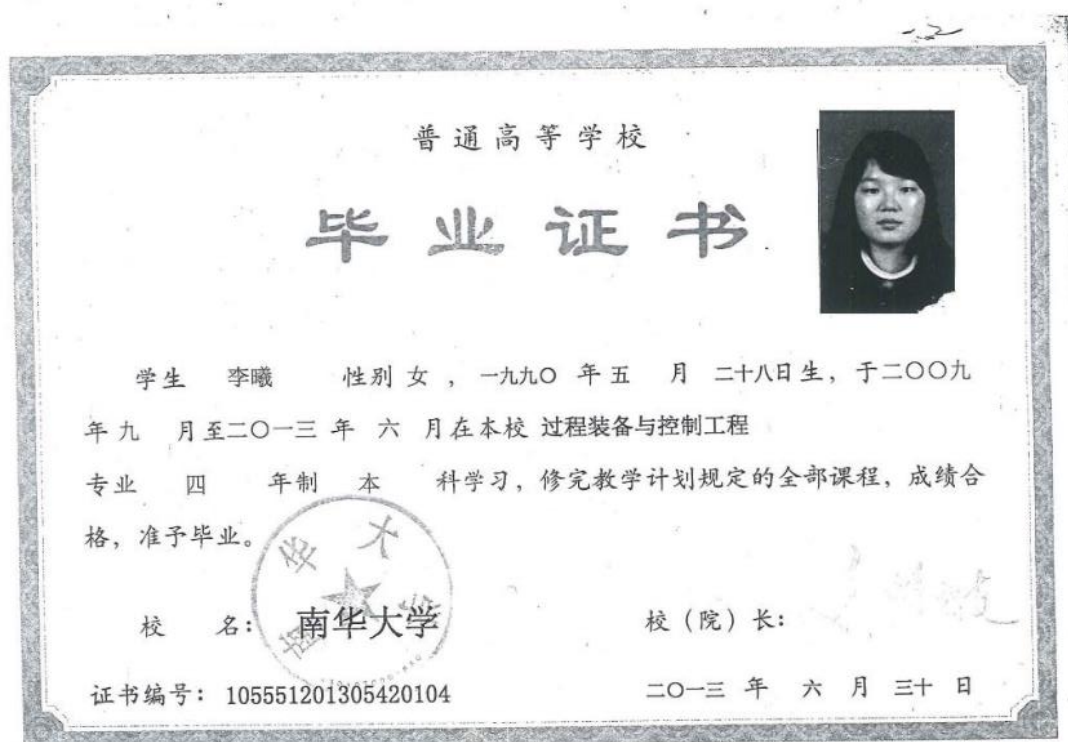 普通高等学校
毕业证书
学生 李曦 性别 女 , 一九九〇 年 五 月 二十八日生, 于二〇〇九
年 九 月至二〇一三 年 六 月在本校 过程装备与控制工程
专业 四 年制 本 科学习, 修完教学计划规定的全部课程, 成绩合
格, 准予毕业。
南华大学
校 名: 南华大学
校 (院) 长:
证书编号: 105551201305420104
二〇一三 年 六 月 三十 日